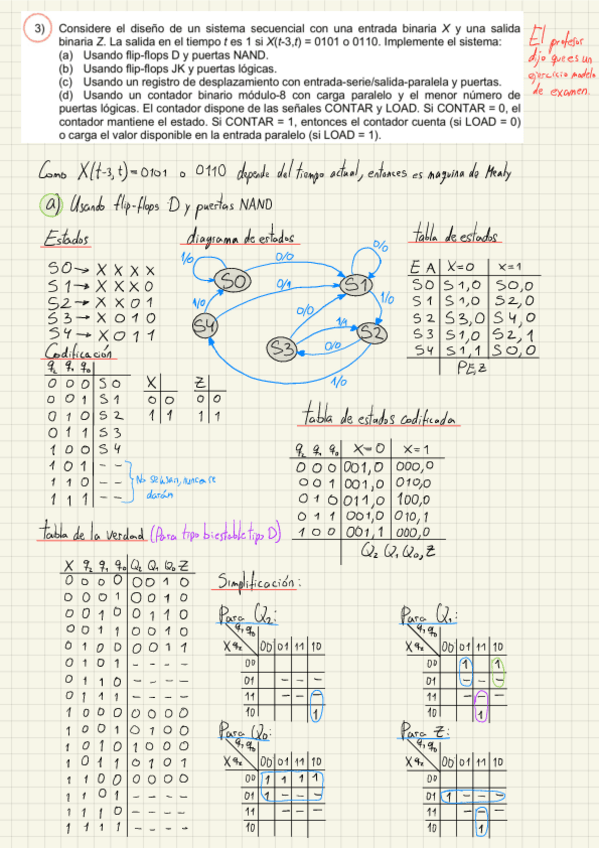 3) Considere el diseño de un sistema secuencial con una entrada binaria X y una salida
binaria Z. La salida en el tiempo t es 1 si X(t-3,t) = 0101 o 0110. Implemente el sistema:
(a) Usando flip-flops D y puertas NAND.
(b) Usando flip-flops JK y puertas lógicas.
(c) Usando un registro de desplazamiento con entrada-serie/salida-paralela y puertas.
(d) Usando un contador binario módulo-8 con carga paralelo y el menor número de
puertas lógicas. El contador dispone de las señales CONTAR y LOAD. Si CONTAR = 0, el
contador mantiene el estado. Si CONTAR = 1, entonces el contador cuenta (si LOAD = 0)
o carga el valor disponible en la entrada paralelo (si LOAD = 1).
El profesor
dijo que es un
ejercicio modelo
de examen.
Como X(t-3, t) = 0101 o 0110 depende del tiempo actual, entonces es maquina de Mealy
a) Usando flip-flops D y puertas NAND
Estados
S0 → X X X X
S1 → X X X 0
S2 → X X 0 1
S3 → X 0 1 0
S4 → X 0 1 1
diagrama de estados
1/0
0/0
0/0
S0
S1
0/1
1/0
1/0
S4
0/0
1/1
S2
S3
0/0
1/0
tabla de estados
E A | X=0 | X=1
S0 | S1,0 | S0,0
S1 | S1,0 | S2,0
S2 | S3,0 | S4,0
S3 | S1,0 | S2,1
S4 | S1,1 | S0,0
PE,Z
Codificación
q2 q1 q0
0 0 0 | S0
0 0 1 | S1
0 1 0 | S2
0 1 1 | S3
1 0 0 | S4
1 0 1 | - -
1 1 0 | - -
1 1 1 | - -
No se usan, nunca se
darán
X
0 | 0
1 | 1
Z
0 | 0
1 | 1
tabla de estados codificada
q2 q1 q0 | X=0 | X=1
0 0 0 | 001,0 | 000,0
0 0 1 | 001,0 | 010,0
0 1 0 | 011,0 | 100,0
0 1 1 | 001,0 | 010,1
1 0 0 | 001,1 | 000,0
Q2 Q1 Q0, Z
tabla de la verdad (Para tipo biestable tipo D)
X q2 q1 q0 Q2 Q1 Q0 Z
0 0 0 0 0 0 1 0
0 0 0 1 0 0 1 0
0 0 1 0 0 1 1 0
0 0 1 1 0 0 1 0
0 1 0 0 0 0 1 1
0 1 0 1 - - - -
0 1 1 0 - - - -
0 1 1 1 - - - -
1 0 0 0 0 0 0 0
1 0 0 1 0 1 0 0
1 0 1 0 1 0 0 0
1 0 1 1 0 1 0 1
1 1 0 0 0 0 0 0
1 1 0 1 - - - -
1 1 1 0 - - - -
1 1 1 1 - - - -
Simplificación:
Para Q2:
q1 q0
X q2 00 01 11 10
00
01 - - -
11 - - -
10 1
Para Q1:
q1 q0
X q2 00 01 11 10
00 1 1
01 - - -
11 - -
10 1
Para Q0:
q1 q0
X q2 00 01 11 10
00 1 1 1 1
01 1 - - -
11 - - -
10
Para Z:
q1 q0
X q2 00 01 11 10
00
01 1 - - -
11 - - -
10 1